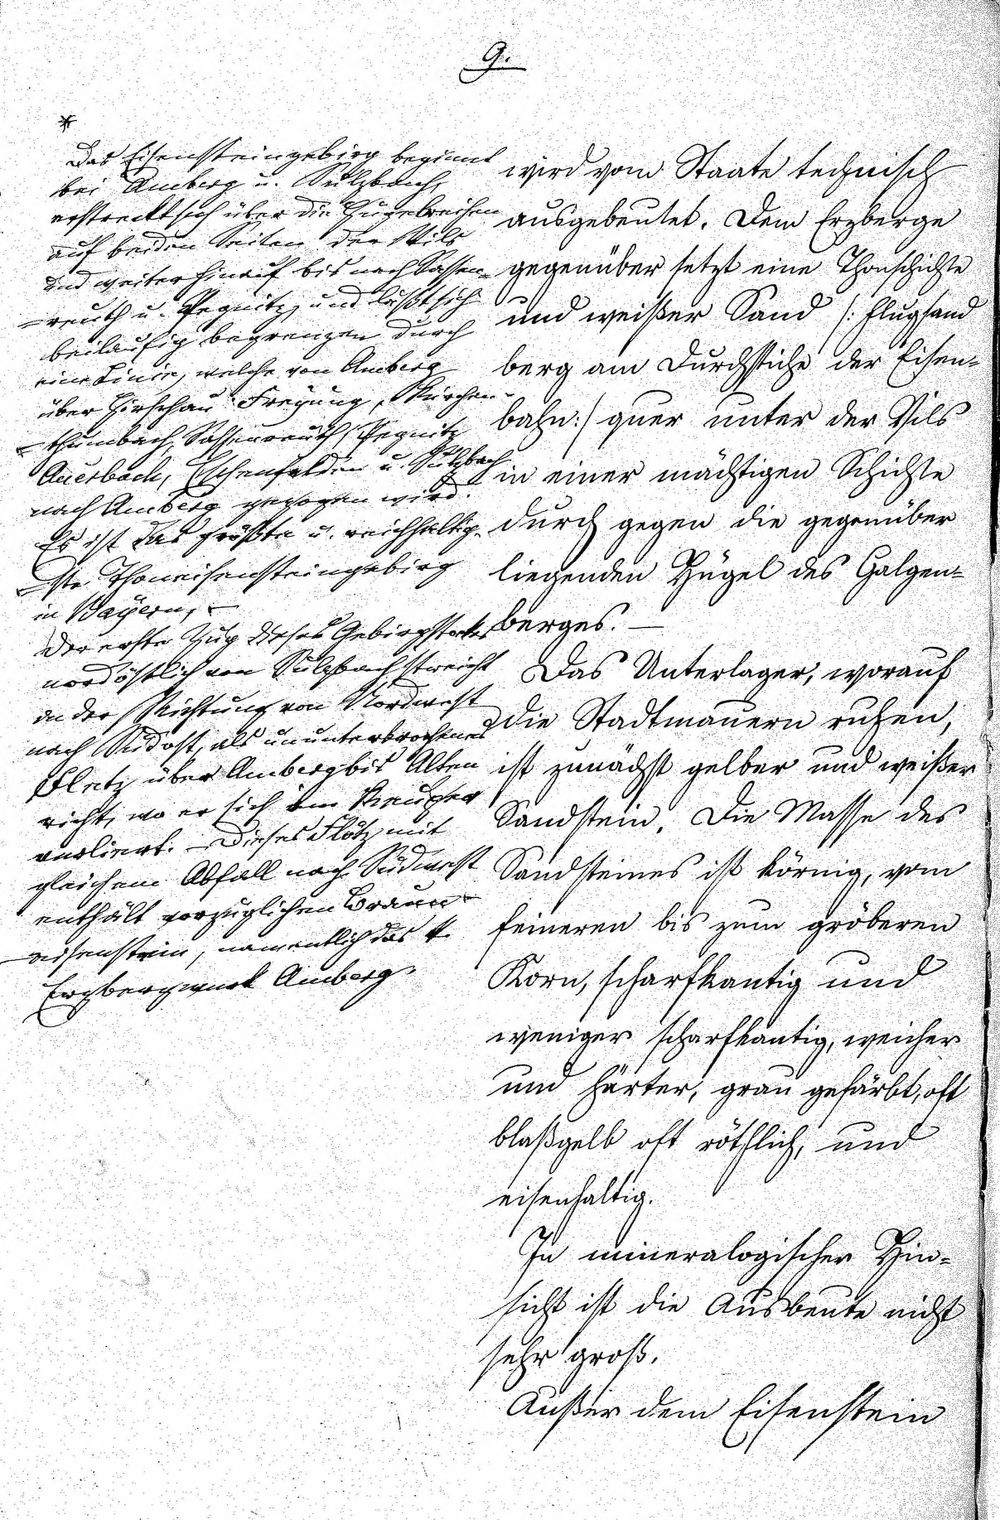 9.
*
Das Eisensteingebirg beginnt
bei Amberg u. Sulzbach,
erstreckt sich über die Hügelreihen
auf beiden Seiten der Vils
und weiter hinauf bis nach Sassen-
=reuth u. Pegnitz, und läßt sich
beiläufig begrenzen durch
eine Linie, welche von Amberg
über Hirschau Freyung, Kirchen-
=thumbach, Sassenreuth, Pegnitz
Auerbach, Eschenfelden u. Sulzbach
nach Amberg gezogen wird.
Es ist das größte u. reichhaltig-
=ste Thoneisensteingebirg
in Bayern, –
Der erste Zug dieses Gebirgstockes
nordöstlich von Sulzbach streicht
in der Richtung von Nordwest
nach Südost, als ununterbrochenes
Fletz über Amberg bis Alten
richt, wo er sich im Keuper
verliert. – Dieses Flötz mit
gleichem Abfall nach Südwest
enthält vorzüglichen Braun-
=eisenstein, namentlich das k.
Erzbergwerk Amberg.
wird vom Staate technisch
ausgebeutet. Dem Erzberge
gegenüber setzt eine Thonschichte
und weißer Sand /: Flugsand
berg am Durchstiche der Eisen-
bahn :/ quer unter der Vils
in einer mächtigen Schichte
durch gegen die gegenüber
liegenden Hügel des Galgen=
berges. —
Das Unterlager, worauf
die Stadtmauern ruhen,
ist zunächst gelber und weißer
Sandstein. Die Masse des
Sandsteines ist körnig, vom
feineren bis zum gröberen
Korn, scharfkantig und
weniger scharfkantig, weicher
und härter, grau gefärbt, oft
blaßgelb oft röthlich, und
eisenhaltig.
In mineralogischer Hin=
sicht ist die Ausbeute nicht
sehr groß.
Außer dem Eisenstein